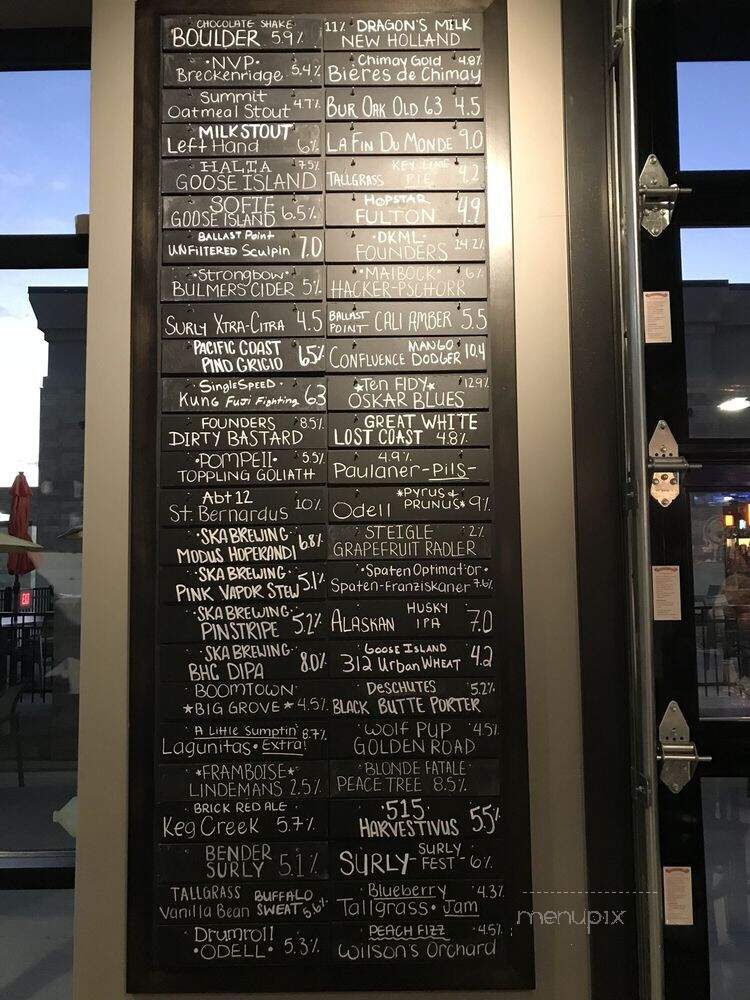 CHOCOLATE SHAKE
BOULDER 5.9%
·NVP·
Breckenridge 5.4%
Summit
Oatmeal Stout 4.7%
MILK STOUT
Left Hand 6%
HALIA 7.5%
GOOSE ISLAND
SOFIE
GOOSE ISLAND 6.5%
BALLAST Point
UNFILTERED Sculpin 7.0
·Strongbow·
BULMERS CIDER 5%
SURLY XTRA-CITRA 4.5
PACIFIC COAST
PINO GRIGIO
·SingleSpeed·
Kung Fuji Fighting 6.3
FOUNDERS 8.5%
DIRTY BASTARD
·POMPEII· 5.5%
TOPPLING GOLIATH
Abt 12
St. Bernardus 10%
·SKA BREWING·
MODUS HOPERANDI 6.8%
·SKA BREWING·
PINK VAPOR STEW 5.1%
·SKA BREWING·
PINSTRIPE 5.2%
·SKA BREWING·
BHC DIPA 8.0%
BOOMTOWN
*BIG GROVE* 4.5%
A Little Sumptin' 8.7%
Lagunitas·Extra!
*FRAMBOISE*
LINDEMANS 2.5%
BRICK RED ALE
Keg Creek 5.7%
BENDER
SURLY 5.1%
TALLGRASS BUFFALO
Vanilla Bean SWEAT 5.6%
Drumroll
·ODELL· 5.3%
11% DRAGON'S MILK
NEW HOLLAND
Chimay Gold 4.8%
Bières de Chimay
BUR OAK OLD 63 4.5
LA FIN DU MONDE 9.0
KEY LIME
TALLGRASS PIE 4.2
HOPSTAR
FULTON 4.9
·DKML·
FOUNDERS 14.2%
·MAIBOCK· 6%
HACKER-PSCHORR
BALLAST
POINT CALI AMBER 5.5
MANGO
CONFLUENCE DODGER 10.4
*Ten FIDY* 12.9%
OSKAR BLUES
GREAT WHITE
LOST COAST 4.8%
4.9%
Paulaner-PILS-
*PYRUS &
Odell PRUNUS* 9%
STEIGLE 2%
GRAPEFRUIT RADLER
·Spaten Optimator·
Spaten-Franziskaner 7.6%
HUSKY
ALASKAN IPA 7.0
GOOSE ISLAND
312 Urban WHEAT 4.2
DESCHUTES 5.2%
BLACK BUTTE PORTER
WOLF PUP 4.5%
GOLDEN ROAD
·BLONDE FATALE·
PEACE TREE 8.5%
·515·
HARVESTIVUS 5.5%
SURLY
SURLY-FEST-6%
Blueberry 4.3%
Tallgrass·Jam
PEACH FIZZ 4.5%
Wilson's Orchard
EXIT
menupix